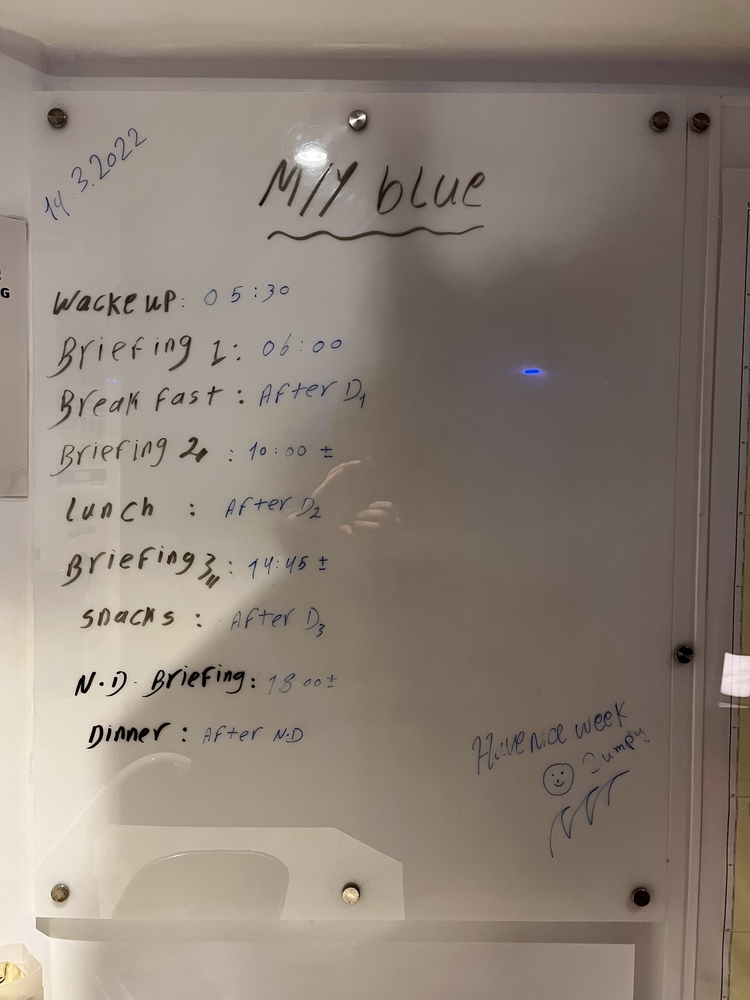 14.3.2022
M/Y blue
Wacke up: 05:30
Briefing 1: 06:00
Break fast: After D1
Briefing 2: 10:00 ±
Lunch : After D2
Briefing 3: 14:45 ±
snacks : After D3
N.D. Briefing: 18 00±
Dinner: After N.D
Have nice week
G